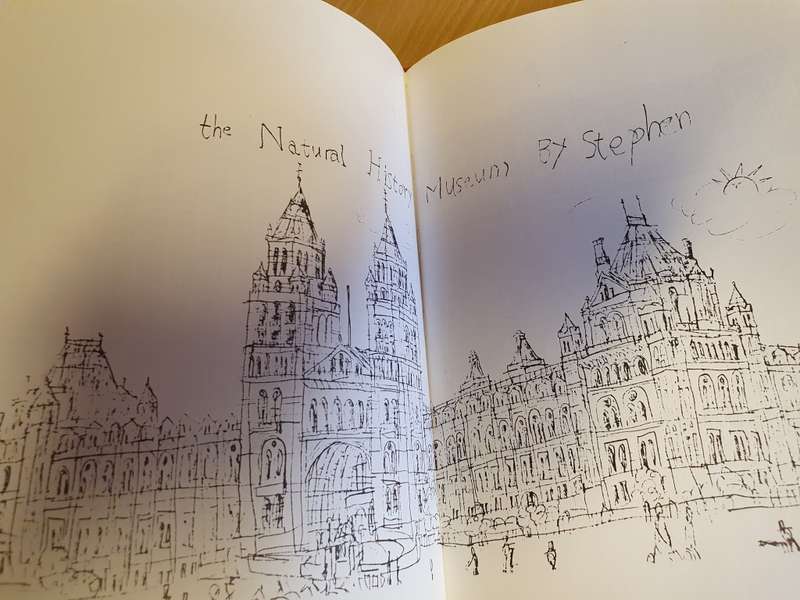 the Natural History Museum By Stephen